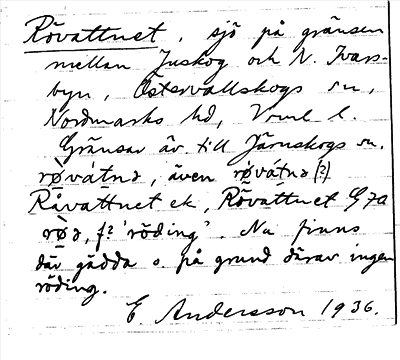 Rövattnet, sjö på gränsen
mellan Juskog och N. Ivars-
byn, Östervallskogs sn,
Nordmarks hd, Vrml l.
Gränsar äv. till Järnskogs sn.
rø̀vátnə, även rǿvátnə (?)
Råvattnet ek, Rövattnet G 70
rø̀ə, f? 'röding'. Nu finns
där gädda o. på grund därav ingen
röding.
E. Andersson 1936.